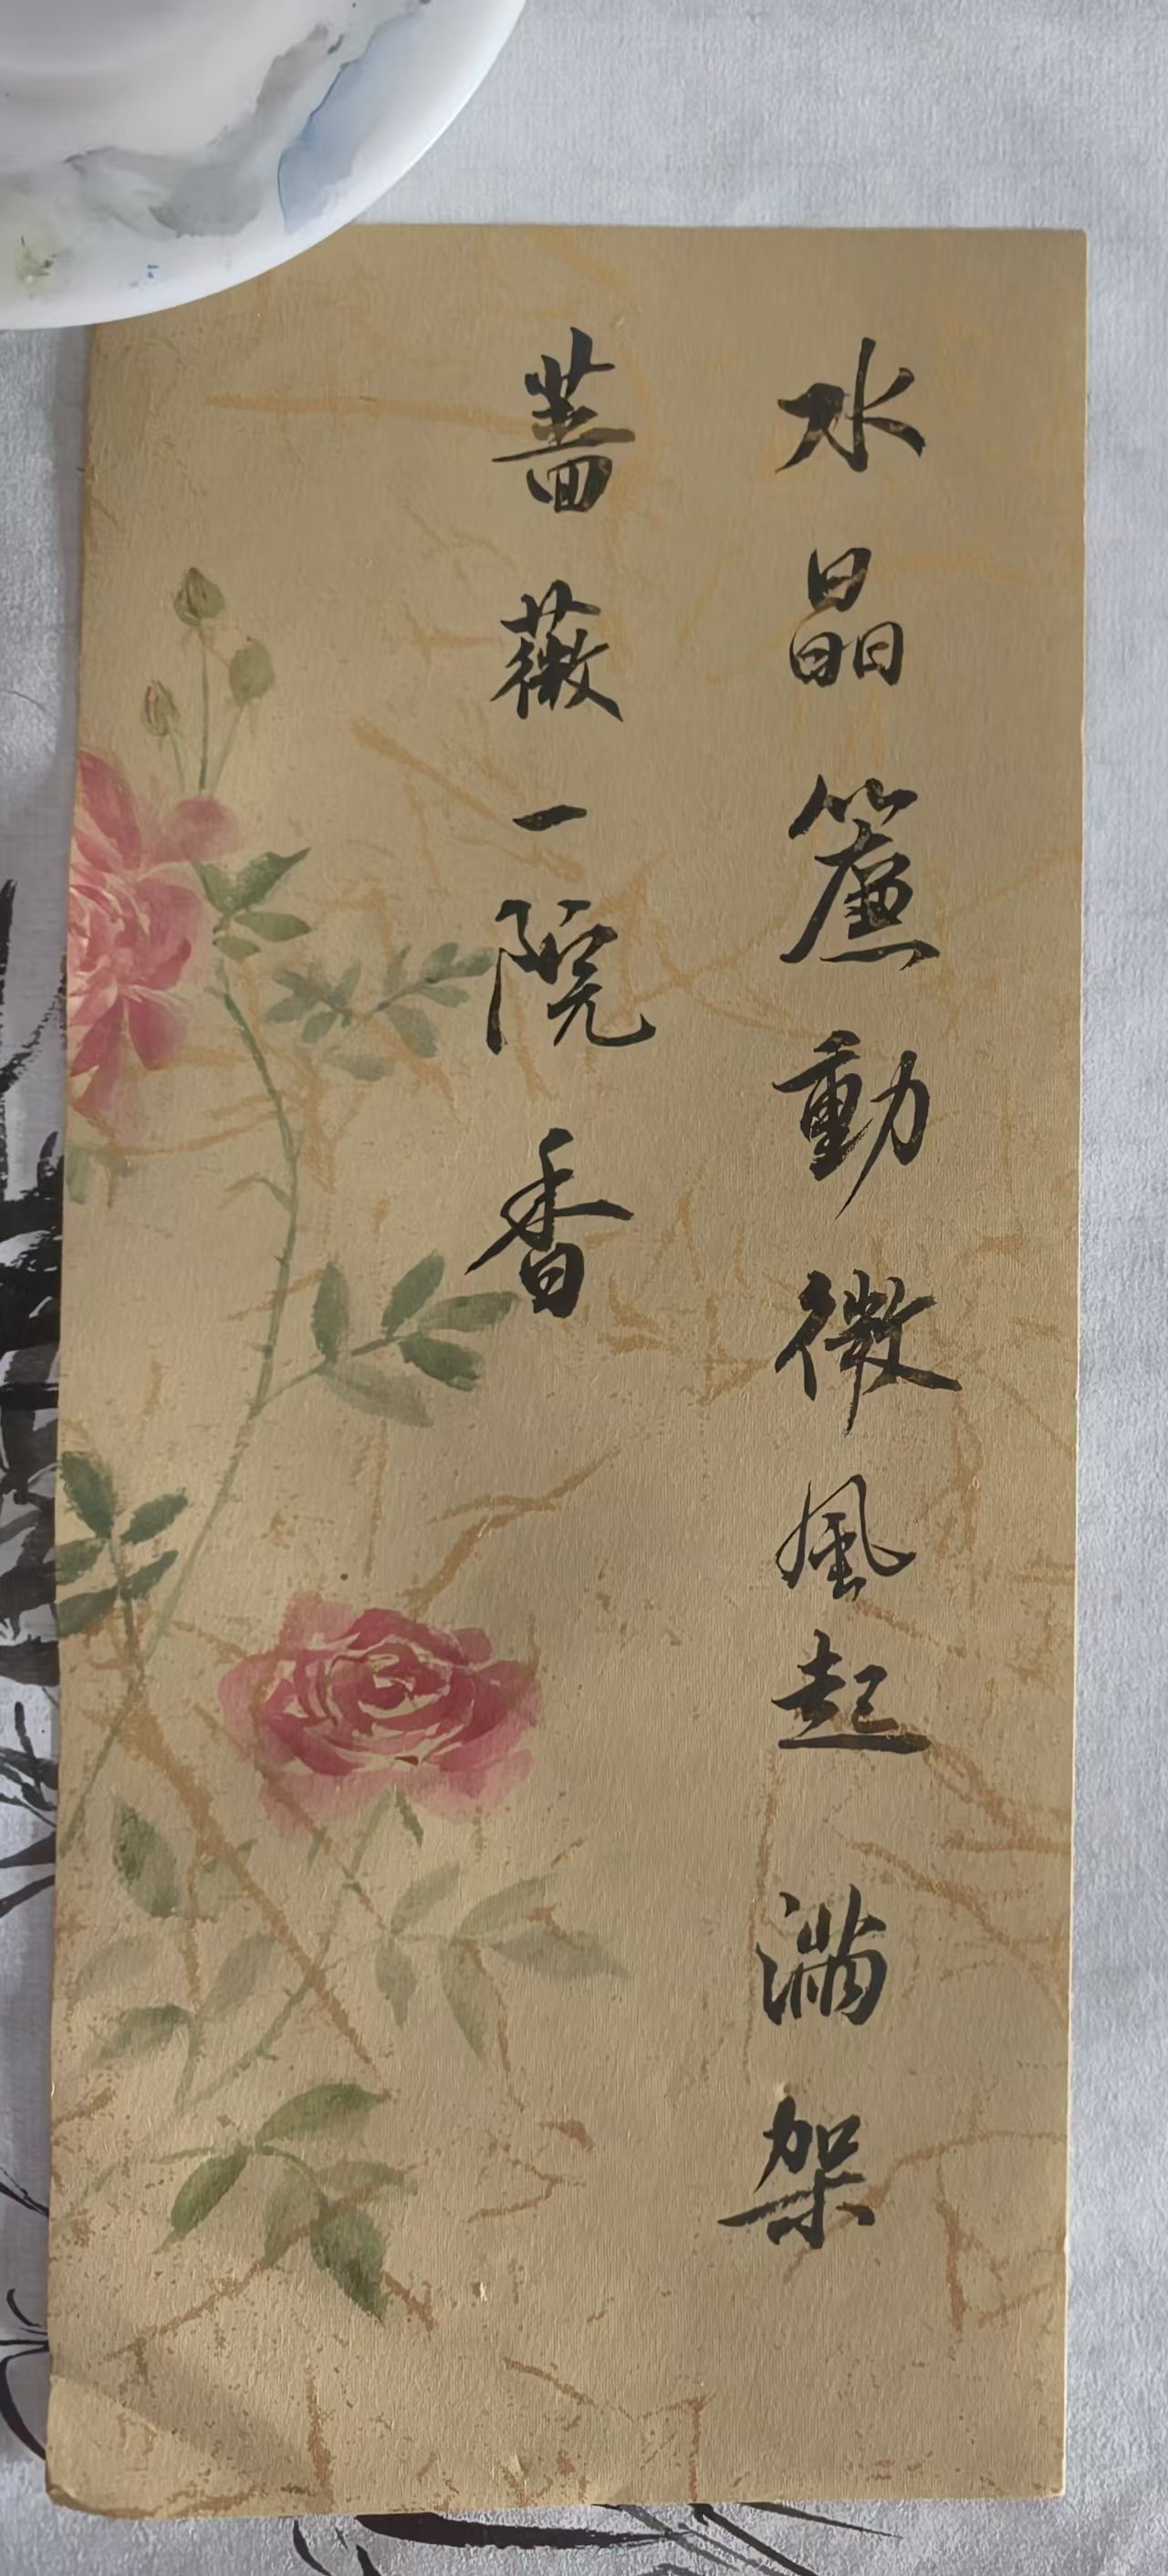 水晶簾動微風起滿架
薔薇一院香